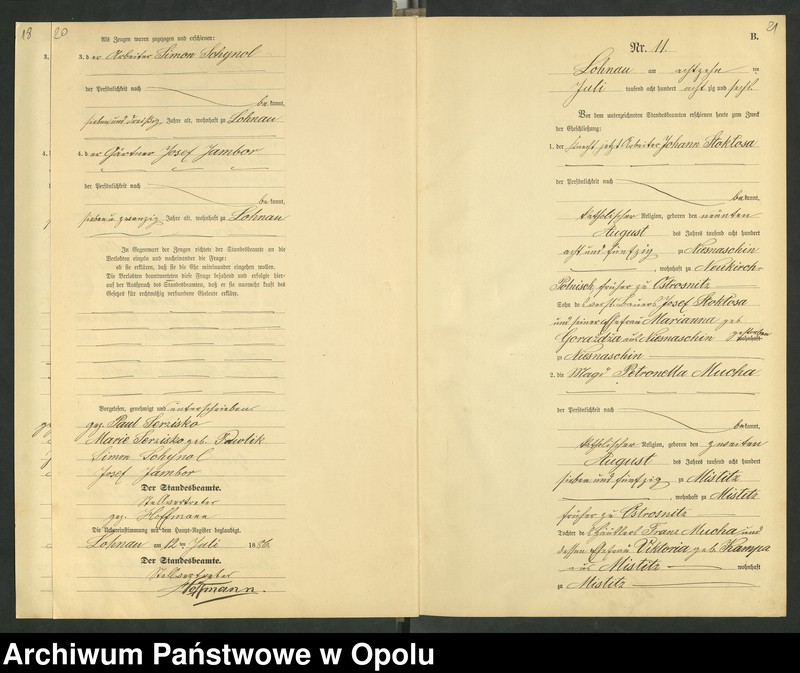 18
20
Als Zeugen waren zugezogen und erschienen:
3. der Arbeiter Simon Schynol
der Persönlichkeit nach
be kannt,
sieben und dreißig Jahre alt, wohnhaft zu Lohnau
4. der Gärtner Josef Jambor
der Persönlichkeit nach
be kannt,
sieben u zwanzig Jahre alt, wohnhaft zu Lohnau
In Gegenwart der Zeugen richtete der Standesbeamte an die
Verlobten einzeln und nacheinander die Frage:
ob sie erklären, daß sie die Ehe miteinander eingehen wollen.
Die Verlobten beantworteten diese Frage bejahend und erfolgte hier-
auf der Ausspruch des Standesbeamten, daß er sie nunmehr kraft des
Gesetzes für rechtmäßig verbundene Eheleute erkläre.
Vorgelesen, genehmigt und unterschrieben
gez. Paul
Marie geb. Pawlik
Simon Schynol
Josef Jambor
Der Standesbeamte.
Stellvertreter
gez. Hoffmann
Die Uebereinstimmung mit dem Haupt-Register beglaubigt.
Lohnau am 12ten Juli 1886.
Der Standesbeamte.
Stellvertreter
Hoffmann.
21
B.
Nr. 11.
Lohnau am achtzehn ten
Juli tausend acht hundert acht zig und sechs.
Vor dem unterzeichneten Standesbeamten erschienen heute zum Zweck
der Eheschließung:
1. der Knecht, jetzt Arbeiter Johann Stoklosa
der Persönlichkeit nach
be kannt,
katholischer Religion, geboren den neunten
August des Jahres tausend acht hundert
acht und fünfzig zu Niesnaschin
, wohnhaft zu Neukirch-
Polnisch, früher zu Ostrosnitz
Sohn des verst. Bauers Josef Stoklosa
und seiner Ehefrau Marianna geb.
Gorazdza aus Niesnaschin gestorben
zu Niesnaschin
2. die Magd Petronella Mucha
der Persönlichkeit nach
be kannt,
katholischer Religion, geboren den zweiten
August des Jahres tausend acht hundert
sieben und fünfzig zu Mistitz
, wohnhaft zu Mistitz
früher zu Ostrosnitz
Tochter des Häuslers Franz Mucha und
dessen Ehefrau Viktoria geb. Kampa
aus Mistitz wohnhaft
zu Mistitz
Archiwum Państwowe w Opolu